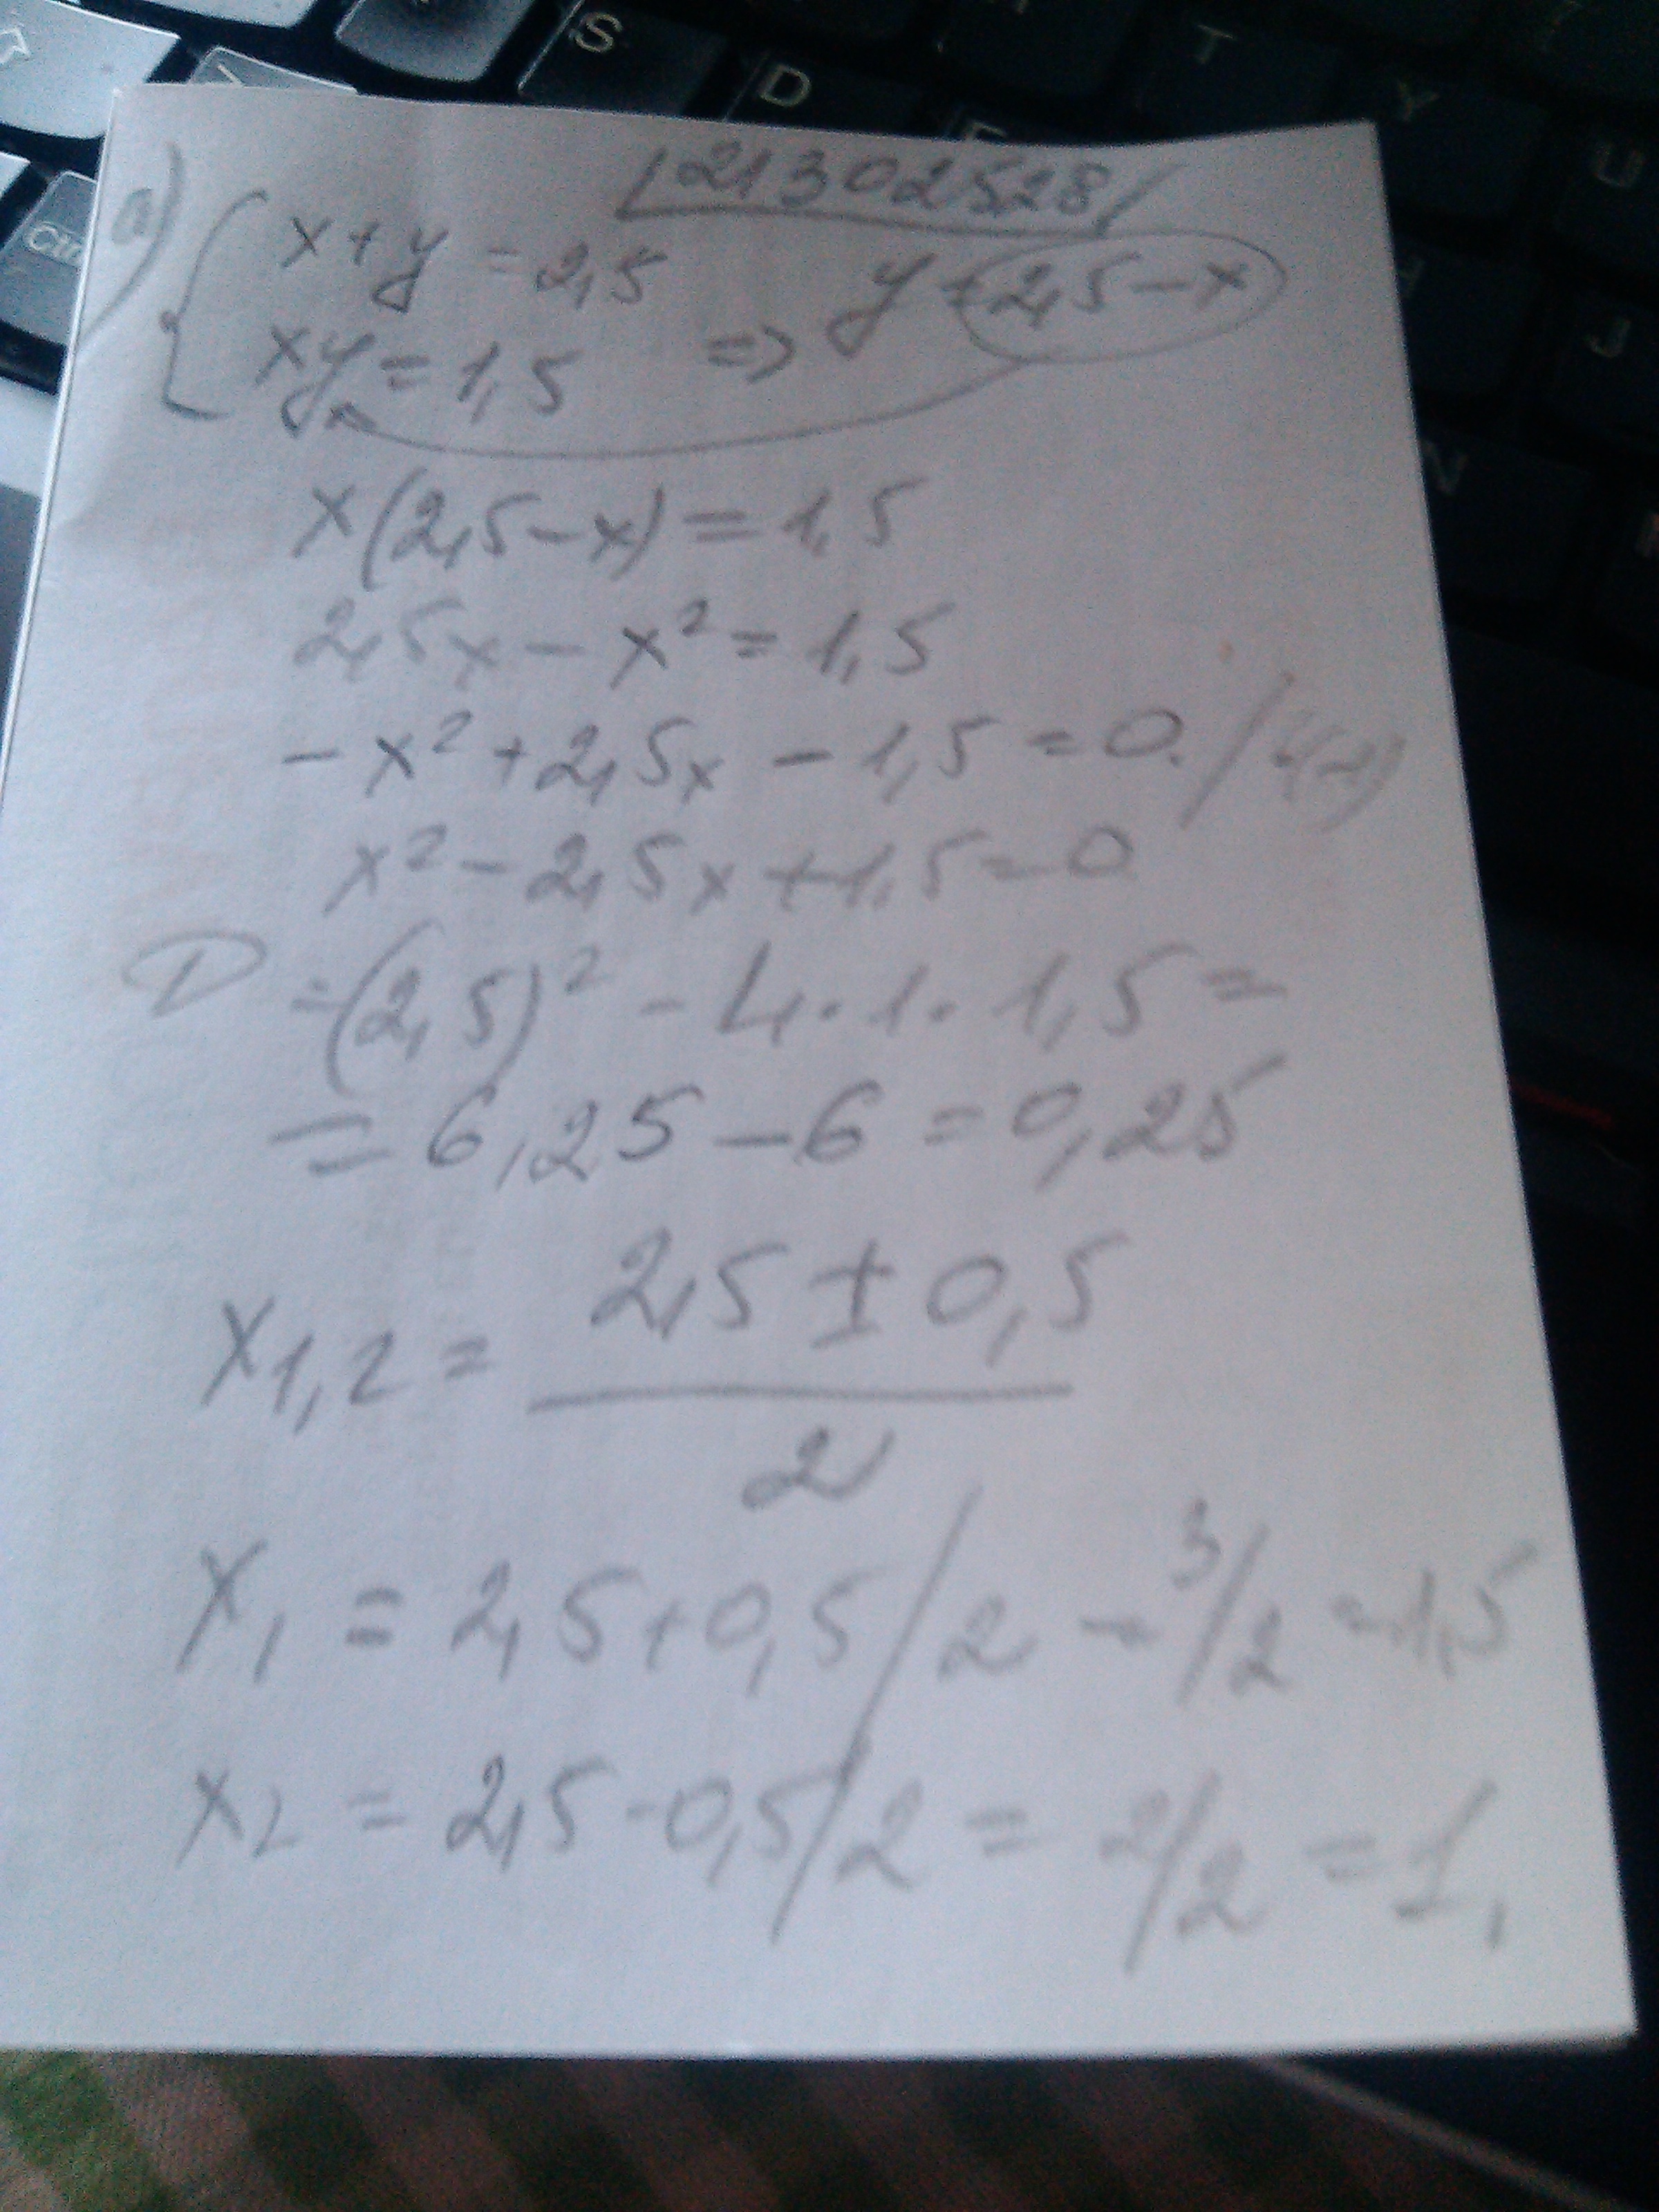 S D T Y U
Ctrl J
N
21302528
a) x+y=2,5 y=2,5-x
xy=1,5 =>
x(2,5-x)=1,5
2,5x-x²=1,5
-x²+2,5x-1,5=0 /·(-1)
x²-2,5x+1,5=0
D=(2,5)²-4·1·1,5=
=6,25-6=0,25
x1,2=(2,5±0,5)/2
x1=2,5+0,5/2=3/2=1,5
x2=2,5-0,5/2=2/2=1,